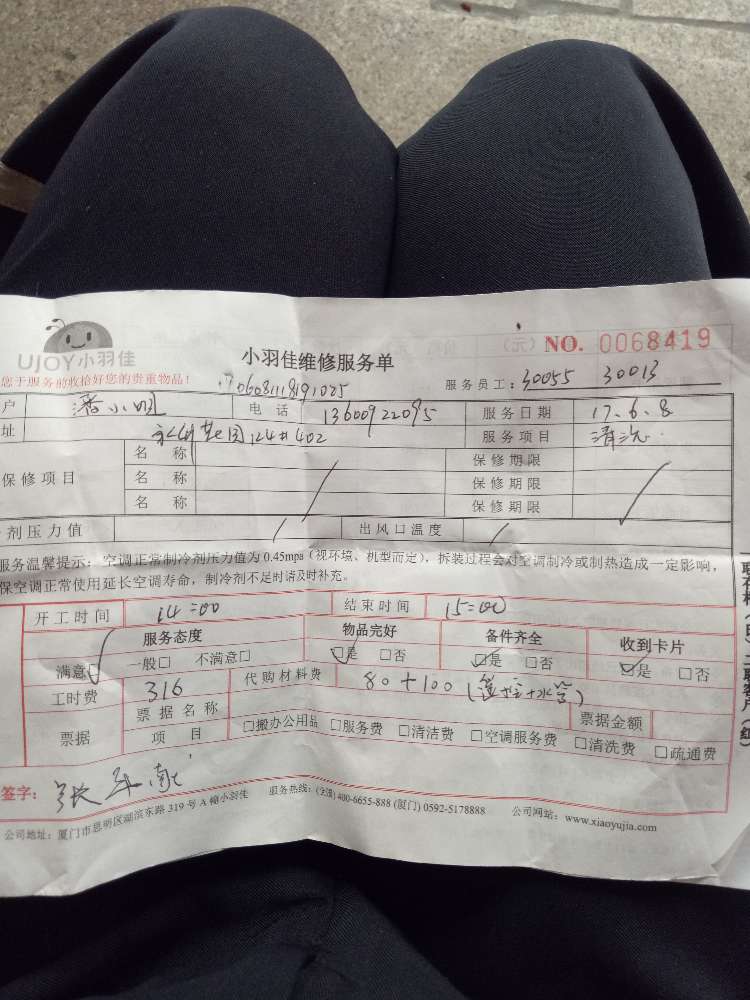 UJOY小羽佳
小羽佳维修服务单
(元) NO. 0068419
您于服务前收拾好您的贵重物品!
1706081118191025
服务员工: 30055 30013
户 潘小明 电话 13600922095 服务日期 17.6.8
址 124#402 服务项目 清洗
保修项目 名称 保修期限
名称 保修期限
名称 保修期限
剂压力值 出风口温度
服务温馨提示: 空调正常制冷剂压力值为0.45mpa(视环境、机型而定), 拆装过程会对空调制冷或制热造成一定影响,
保空调正常使用延长空调寿命, 制冷剂不足时请及时补充。
开工时间 14:00 结束时间 15:00
服务态度 物品完好 备件齐全 收到卡片
满意□ 一般□ 不满意□ □是 □否 □是 □否 □是 □否
工时费 316 代购材料费 80+100(遥控+水管)
票据 票据名称 票据金额
项目 □搬办公用品 □服务费 □清洁费 □空调服务费 □清洗费 □疏通费
签字: 张
公司地址: 厦门市思明区湖滨东路319号A幢小羽佳 服务热线: (全国) 400-6655-888 (厦门) 0592-5178888 公司网站: www.xiaoyujia.com